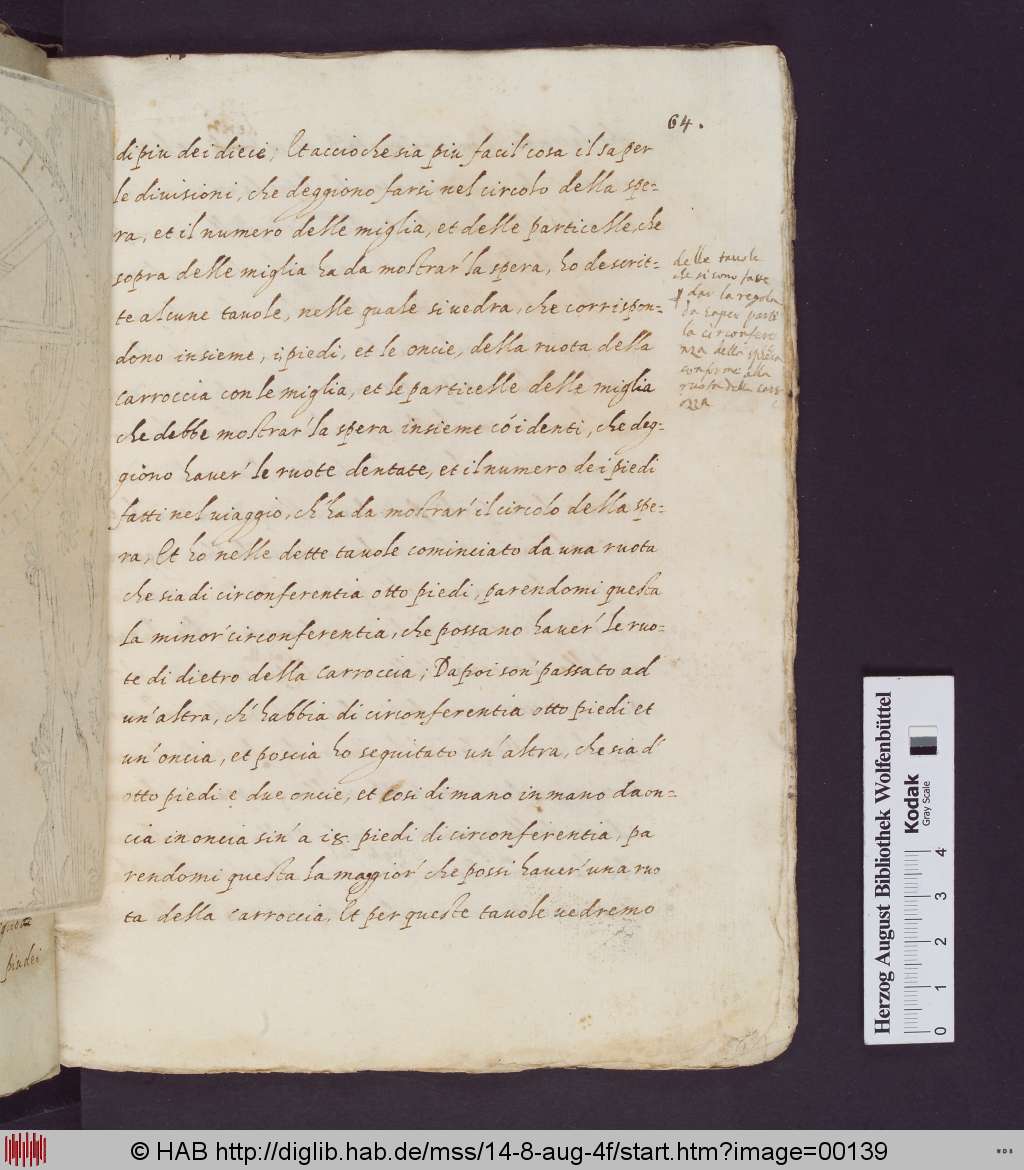 64.
di piu dei dieci; Et accioche sia piu facil' cosa il saper
le divisioni, che deggiono farsi nel circolo della spe=
ra, et il numero delle miglia, et delle particelle, che
sopra delle miglia ha da mostrar' la spera, ho descrit=
te alcune tavole, nelle quale si vedra, che corrispon=
dono insieme, i piedi, et le oncie, della ruota della
carroccia con le miglia, et le particelle delle miglia
che debbe mostrar' la spera insieme có i denti, che deg=
giono haver' le ruote dentate, et il numero dei piedi
fatti nel viaggio, ch' ha da mostrar' il circolo della spe=
ra, Et ho nelle dette tavole cominciato da una ruota
che sia di circonferentia otto piedi, parendomi questa
la minor' circonferentia, che possano haver' le ruo=
te di dietro della carroccia; Dapoi son' passato ad
un' altra, ch' habbia di circonferentia otto piedi et
un' oncia, et poscia ho seguitato un' altra, che sia d'
otto piedi e due oncie, et cosi di mano in mano da on=
cia in oncia sin' a 18. piedi di circonferentia, pa
rendomi questa la maggior' che possi haver' una ruo
ta della carroccia, Et per queste tavole vedremo
delle tavole
che si sono fatte
dar la regola
da saper
la circonfere
nza della spera
conforme alla
ruota della carr
ozza
piu dei
Herzog August Bibliothek Wolfenbüttel
Kodak
Gray Scale
0 1 2 3 4
© HAB http://diglib.hab.de/mss/14-8-aug-4f/start.htm?image=00139